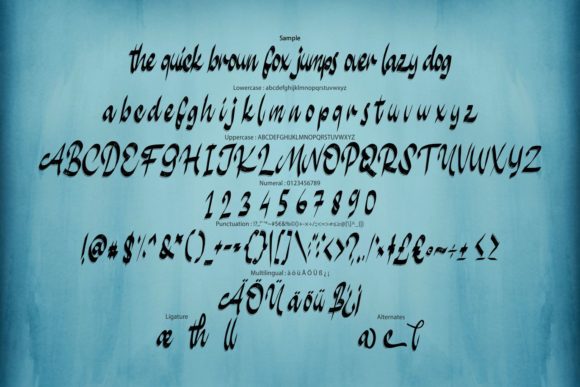 Sample
the quick brown fox jumps over lazy dog
Lowercase : abcdefghijklmnopqrstuvwxyz
a b c d e f g h i j k l m n o p q r s t u v w x y z
Uppercase : ABCDEFGHIJKLMNOPQRSTUVWXYZ
ABCDEFGHIJKLMNOPQRSTUVWXYZ
Numeral : 0123456789
1 2 3 4 5 6 7 8 9 0
Punctuation :
!@#$%^&*()_+-={}|[]\:";'<>?,./
Multilingual : ä ö ü Ä Ö Ü ß ¿ ¡
Ä Ö Ü ä ö ü ß ¿ ¡
Ligature Alternates
æ th ll